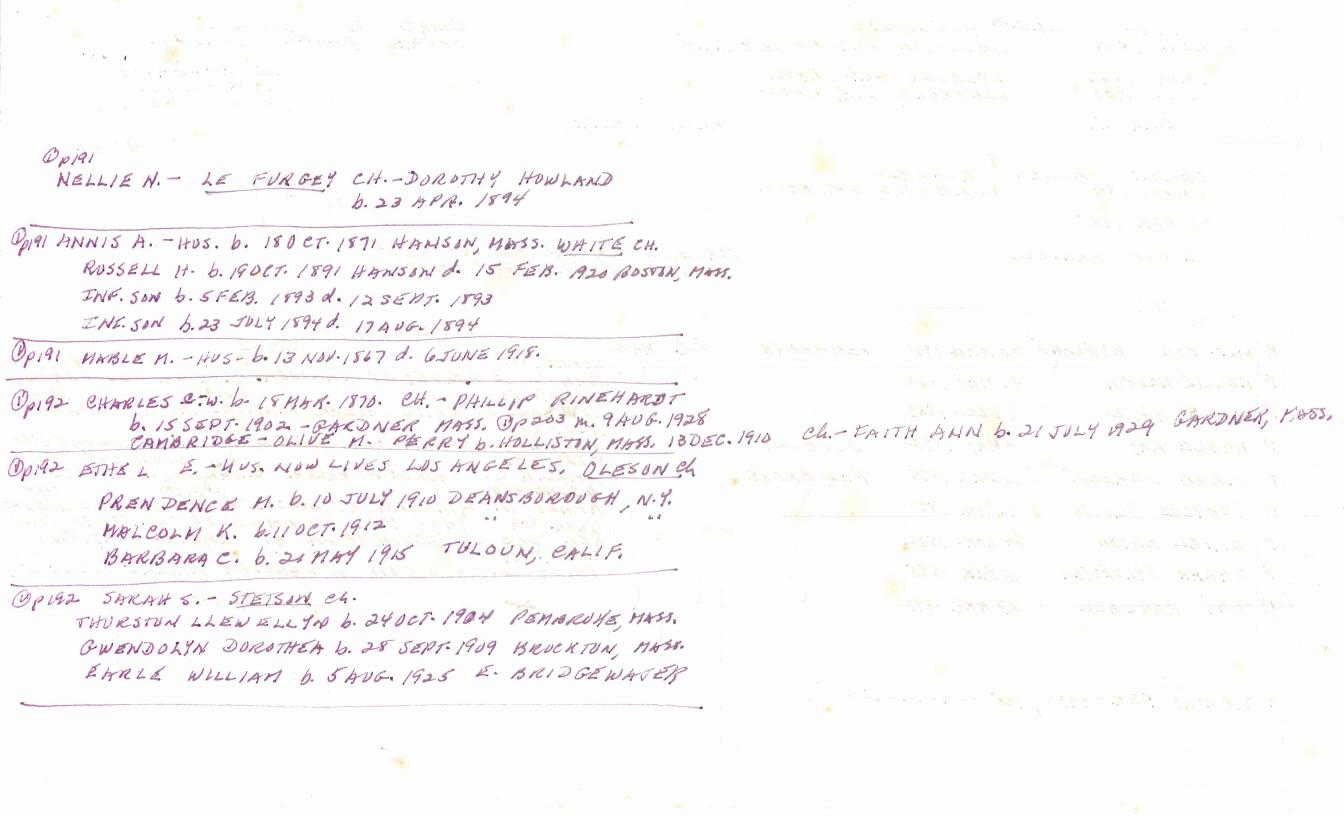 ① p191
NELLIE N. – LE FURGEY CH. – DOROTHY HOWLAND
b. 23 APR. 1894
① p191 ANNIS A. – HUS. b. 18 OCT. 1871 HANSON, MASS. WHITE CH.
RUSSELL H. b. 19 OCT. 1891 HANSON d. 15 FEB. 1920 BOSTON, MASS.
INF. SON b. 5 FEB. 1893 d. 12 SEPT. 1893
INF. SON b. 23 JULY 1894 d. 17 AUG. 1894
① p191 MABLE M. – HUS – b. 13 NOV. 1867 d. 6 JUNE 1918.
① p192 CHARLES C.W. b. 18 MAR. 1870. CH. – PHILLIP RINEHARDT
b. 15 SEPT. 1902 – GARDNER MASS. ① p203 m. 9 AUG. 1928
CAMBRIDGE – OLIVE M. PERRY b. HOLLISTON, MASS. 13 DEC. 1910 Ch. – FAITH ANN b. 21 JULY 1929 GARDNER, MASS.
① p192 ETHEL E. – HUS. NOW LIVES LOS ANGELES. OLESON Ch
PRENDENCE M. b. 10 JULY 1910 DEANSBOROUGH, N.Y.
MALCOLM K. b. 11 OCT. 1912 " "
BARBARA C. b. MAY 1915 TULOUN, CALIF.
① p192 SARAH S. – STETSON Ch.
THURSTON LLEWELLYN b. 24 OCT. 1904 PEMBROKE, MASS.
GWENDOLYN DOROTHEA b. 28 SEPT. 1909 BROCKTON, MASS.
EARLE WILLIAM b. 5 AUG. 1925 E. BRIDGEWATER